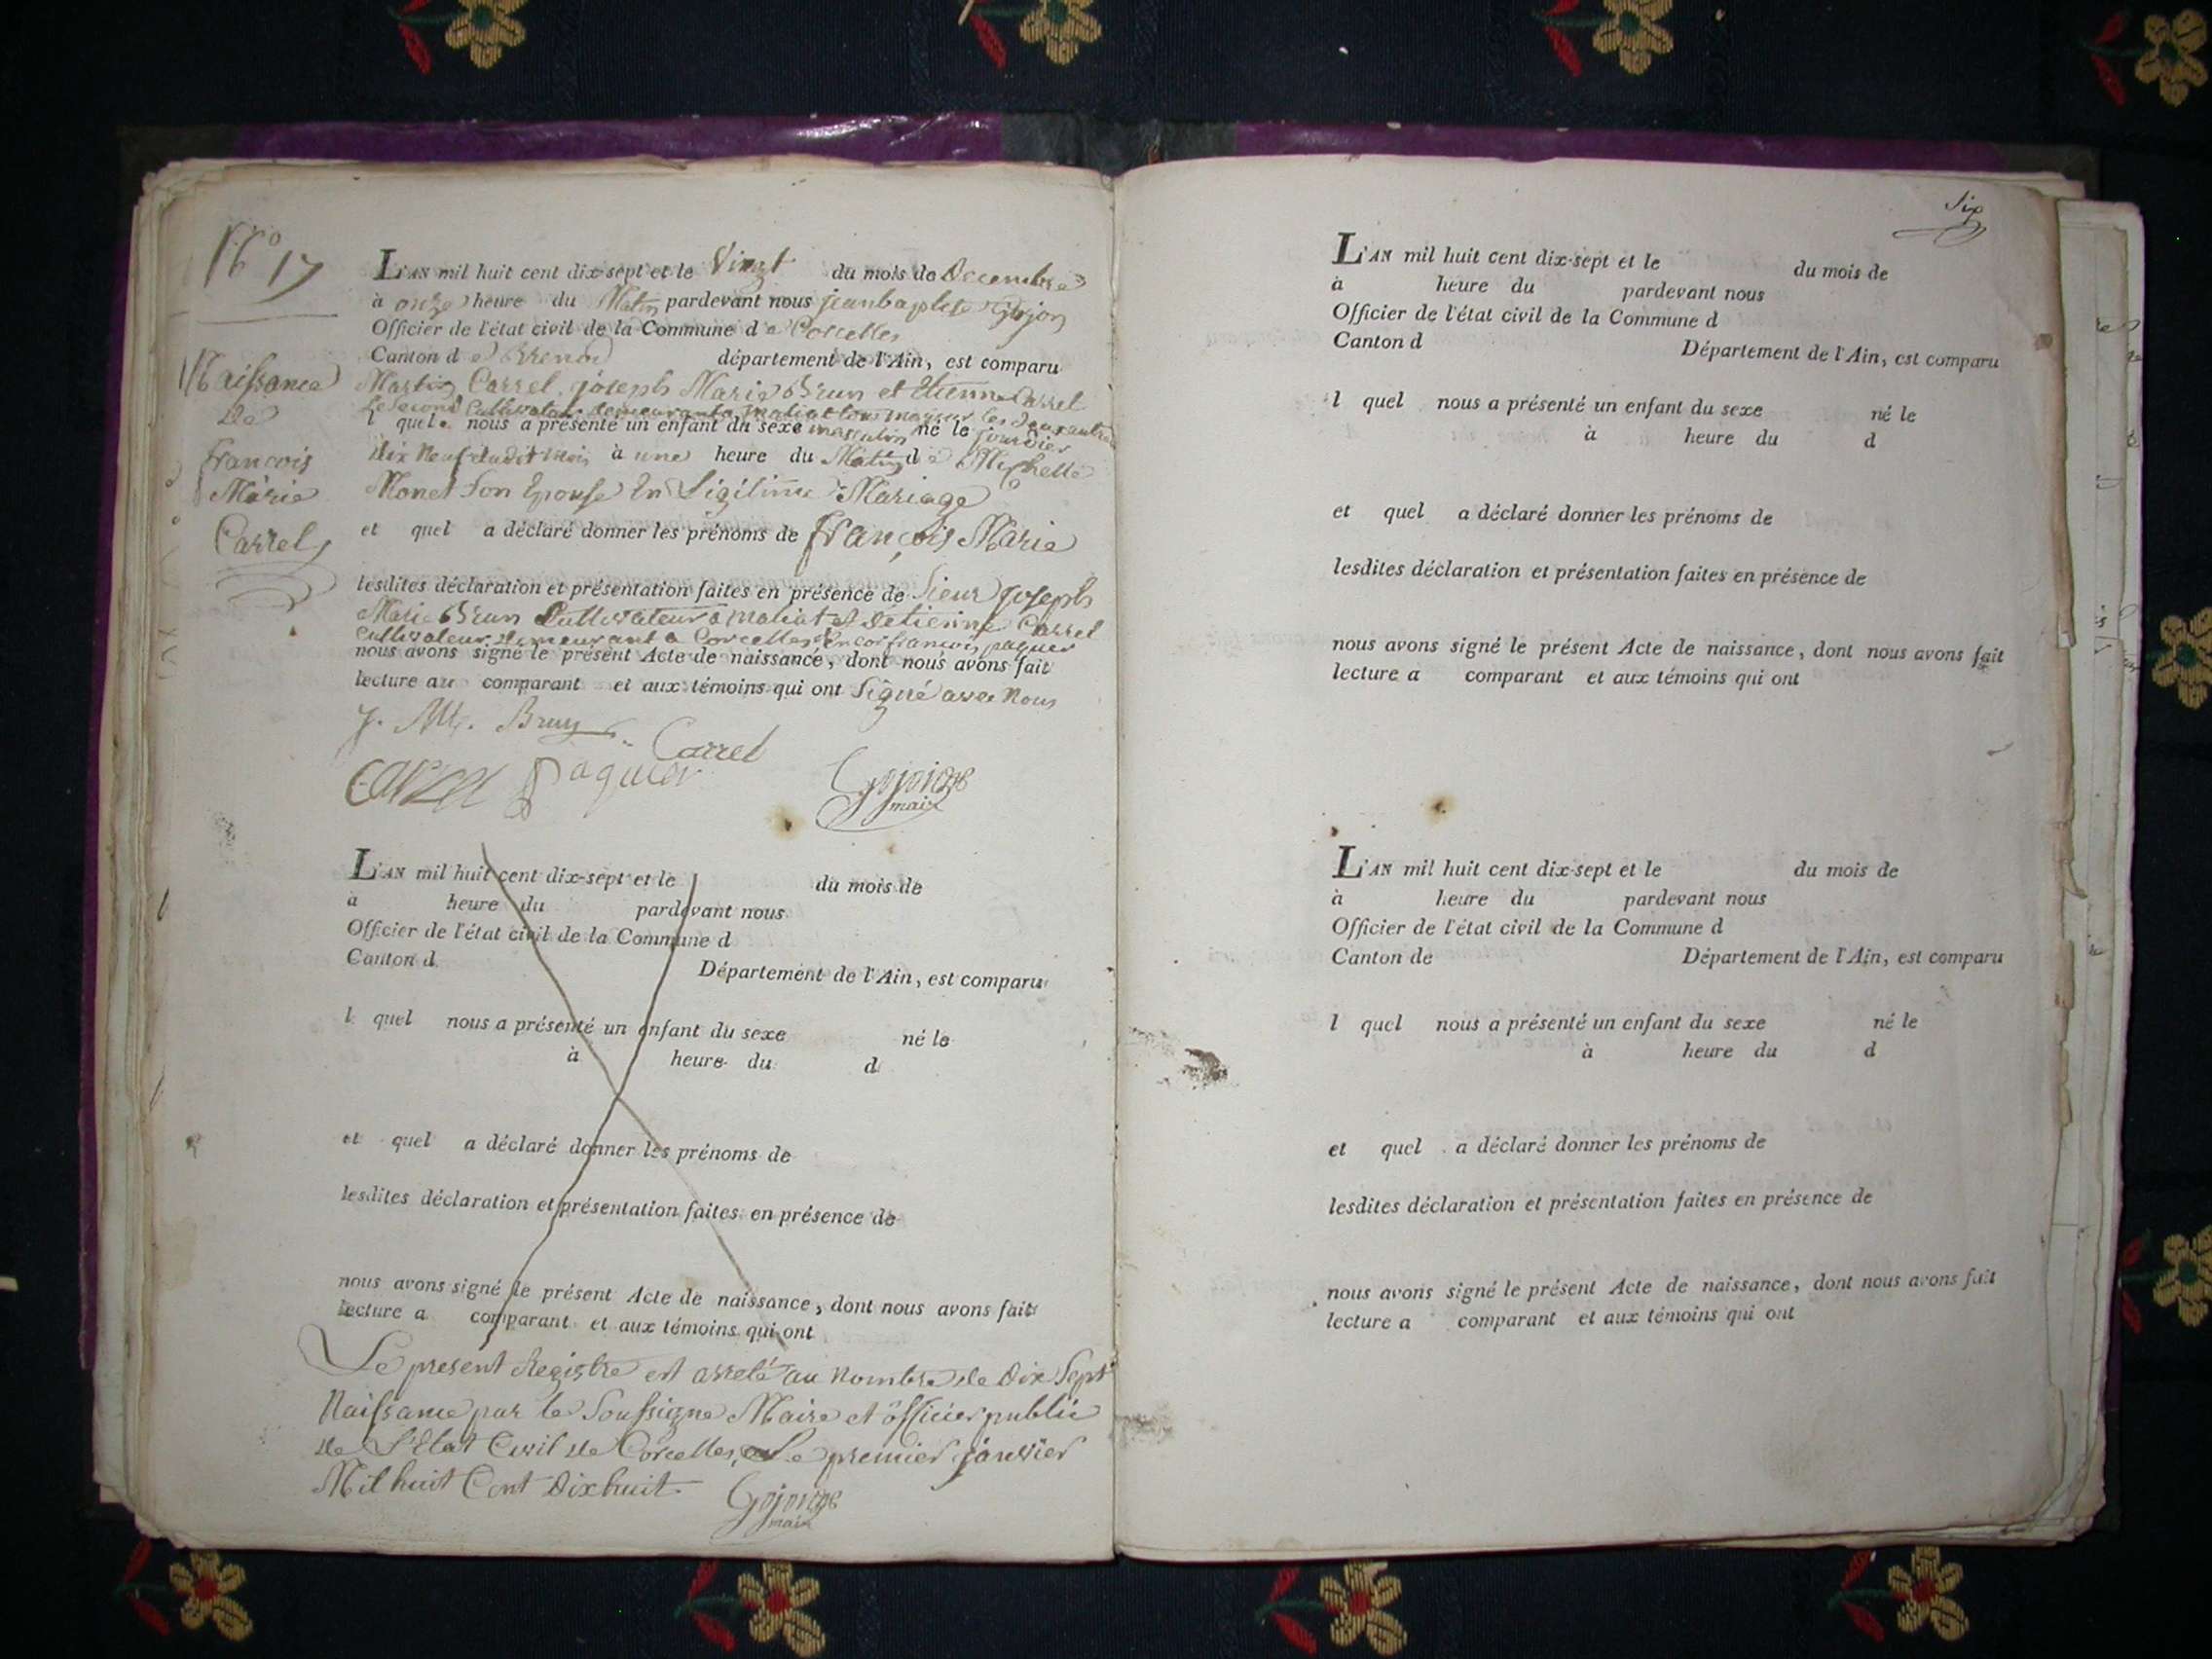 N.º 17
Naissance
de
François
Marie
Carrel
L'AN mil huit cent dix-sept et le Vingt du mois de Decembre
à onze heure du Matin pardevant nous jean baptiste Gojon
Officier de l'état civil de la Commune de Corcelles
Canton de Brenod département de l'Ain, est comparu
Martin Carrel, joseph Marie Brun et Etienne Carrel
Le Second Cultivateur demeurant a maliat tous majeur les deux autre
l quel nous a présenté un enfant du sexe masculin né le jour dier
dix Neuf dudit mois à une heure du Matin de Michelle
Monet Son Epouse En Ligitime Mariage
et quel a déclaré donner les prénoms de François Marie
lesdites déclaration et présentation faites en présence de Sieur joseph
Marie Brun Cultivateur a maliat et detienne Carrel
Cultivateur demeurant a Corcelles françois paquer
nous avons signé le présent Acte de naissance, dont nous avons fait
lecture au comparant et aux témoins qui ont Signé avec Nous
J. M. Brun
Carrel
Carrel Paquer
Gojon
maire
L'AN mil huit cent dix-sept et le du mois de
à heure du pardevant nous
Officier de l'état civil de la Commune d
Canton d Département de l'Ain, est comparu
l quel nous a présenté un enfant du sexe né le
à heure du d
et quel a déclaré donner les prénoms de
lesdites déclaration et présentation faites en présence de
nous avons signé le présent Acte de naissance, dont nous avons fait
lecture a comparant et aux témoins qui ont
Le present Registre est arreté au Nombre de Dix Sept
Naissance par le Soussigne Maire et officier public
de l'Etat Civil de Corcelles, Le premier janvier
Mil huit Cent Dix huit
Gojon
maire
Six
L'AN mil huit cent dix-sept et le du mois de
à heure du pardevant nous
Officier de l'état civil de la Commune d
Canton d Département de l'Ain, est comparu
l quel nous a présenté un enfant du sexe né le
à heure du d
et quel a déclaré donner les prénoms de
lesdites déclaration et présentation faites en présence de
nous avons signé le présent Acte de naissance, dont nous avons fait
lecture a comparant et aux témoins qui ont
L'AN mil huit cent dix-sept et le du mois de
à heure du pardevant nous
Officier de l'état civil de la Commune d
Canton de Département de l'Ain, est comparu
l quel nous a présenté un enfant du sexe né le
à heure du d
et quel a déclaré donner les prénoms de
lesdites déclaration et présentation faites en présence de
nous avons signé le présent Acte de naissance, dont nous avons fait
lecture a comparant et aux témoins qui ont